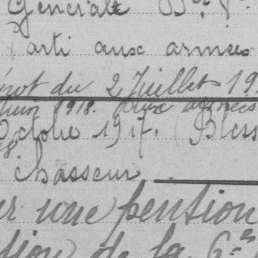 Générale
Parti aux armées
du 2 Juillet 19
juin 1918. deux années
Octobre 1917. (Bless
chasseur
une pension
de la 6es